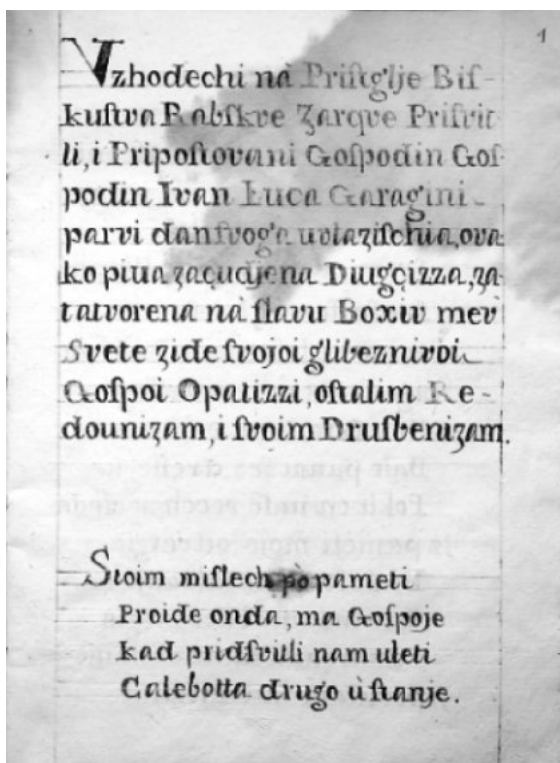 1
Vzhodechi nà Priſtglje Biſ-
kuſtva Rabſkve Zarque Priſvit
li, i Pripoſtovani Goſpodin Goſ
podin Ivan Luca Garagini
parvi dan ſvoga uvlaziſchia, ova
ko piva zaçudjena Divgcizza, za
tatvorena nà ſlavu Boxiu mev
Svete zide ſvojoi glibeznivoi
Goſpoi Opatizzi, oſtalim Re-
dounizam, i ſvoim Druſbenizam.
Stoim miſlech pò pameti
Proide onda, ma Goſpoje
kad pridſvitli nam uleti
Calebotta drugo ù ſtanje.